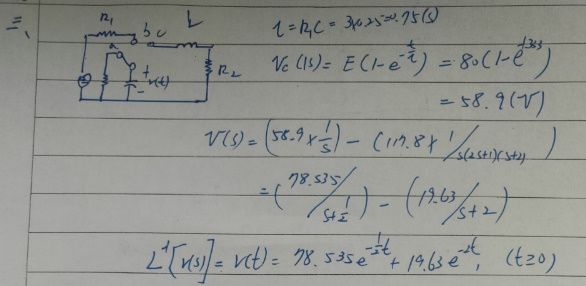 三、
R₁ b c L
a
R₂
+ v(t) -
τ = R₁C = 3×0.25 = 0.75(s)
Vc(1s) = E(1-e^{-t/τ}) = 80(1-e^{-1.333})
= 58.9(V)
V(s) = (58.9 × 1/s) - (117.8 × 1/s(2s+1)(s+2))
= (78.535/s+1/2) - (19.63/s+2)
L⁻¹[V(s)] = v(t) = 78.535e^{-1/2t} + 19.63e^{-2t}, (t≥0)